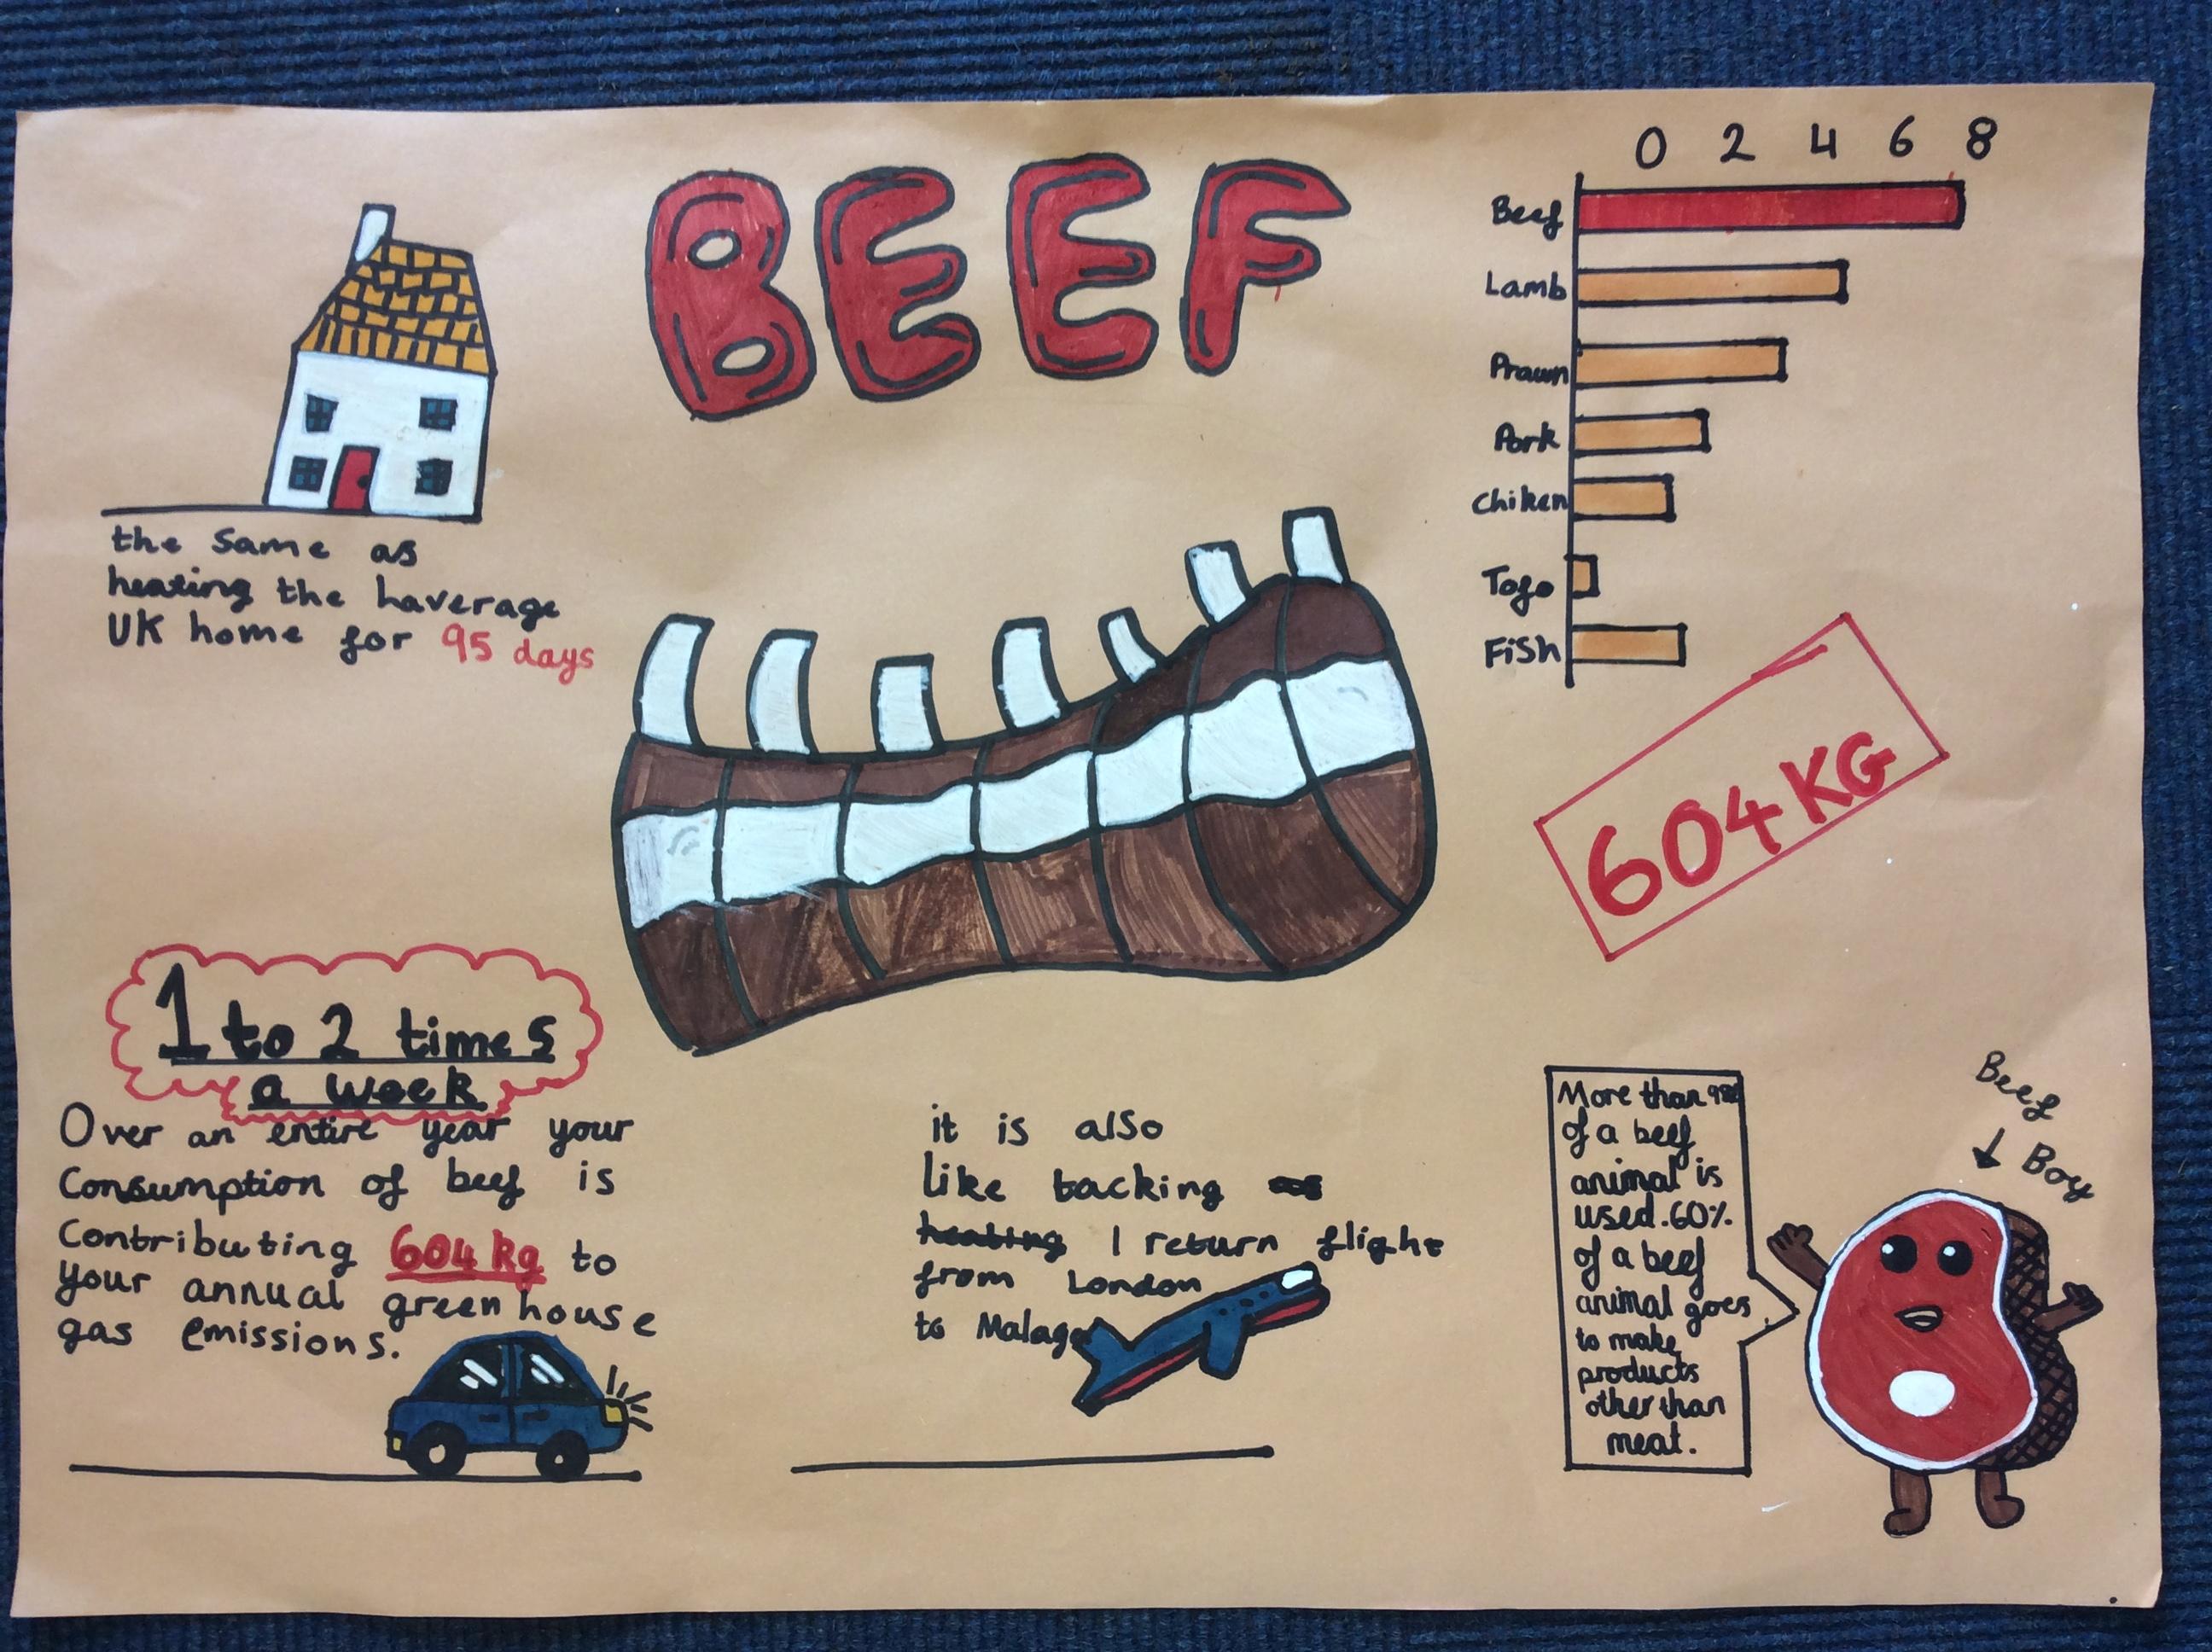 BEEF
0 2 4 6 8
Beef
Lamb
Prawn
Pork
Chiken
Tofo
Fish
604 KG
the same as
heating the haverage
UK home for 95 days
1 to 2 times
a week
Over an entire year your
consumption of beef is
contributing 604 kg to
your annual green house
gas emissions.
it is also
like backing as
heating 1 return flight
from London
to Malaga
More than
of a beef
animal is
used. 60%
of a beef
animal goes
to make
products
other than
meat.
Beef
Boy